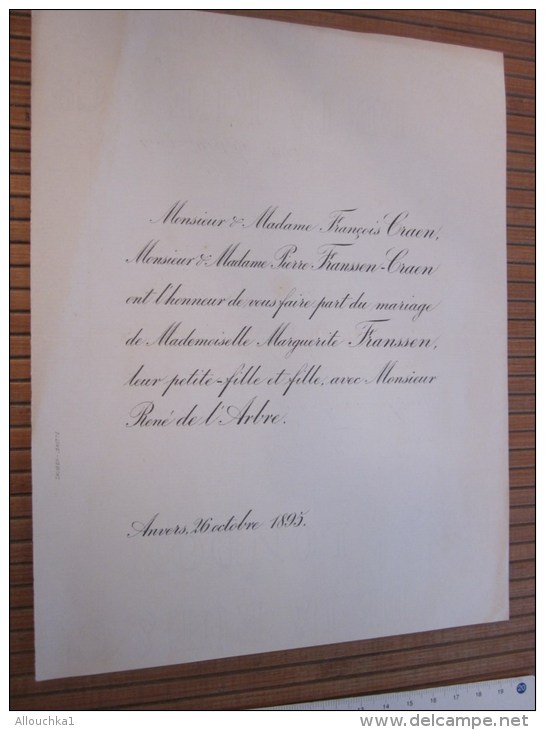 Monsieur & Madame François Craen,
Monsieur & Madame Pierre Franssen-Craen
ont l'honneur de vous faire part du mariage
de Mademoiselle Marguerite Franssen,
leur petite-fille et fille, avec Monsieur
René de l'Arbre.
Anvers, 26 octobre 1895.
14 15 16 17 18 19 20
Allouchka1
www.delcampe.net